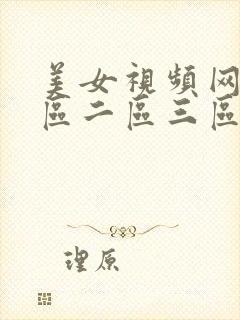 美女視頻网
區二區三區
理原